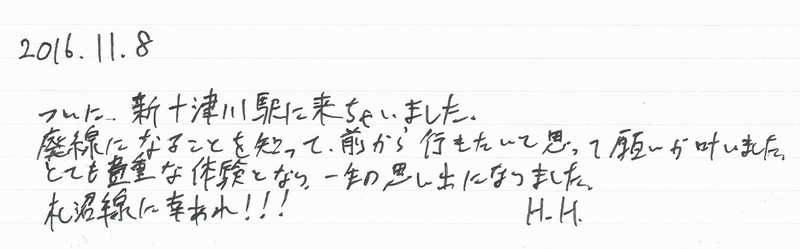 2016.11.8
ついに、新十津川駅に来ちゃいました。
廃線になることを知って、前から行きたいて思って願いが叶いました。
とても貴重な体験となり、一生の思い出になりました。
札沼線に幸あれ!!!
H.H.